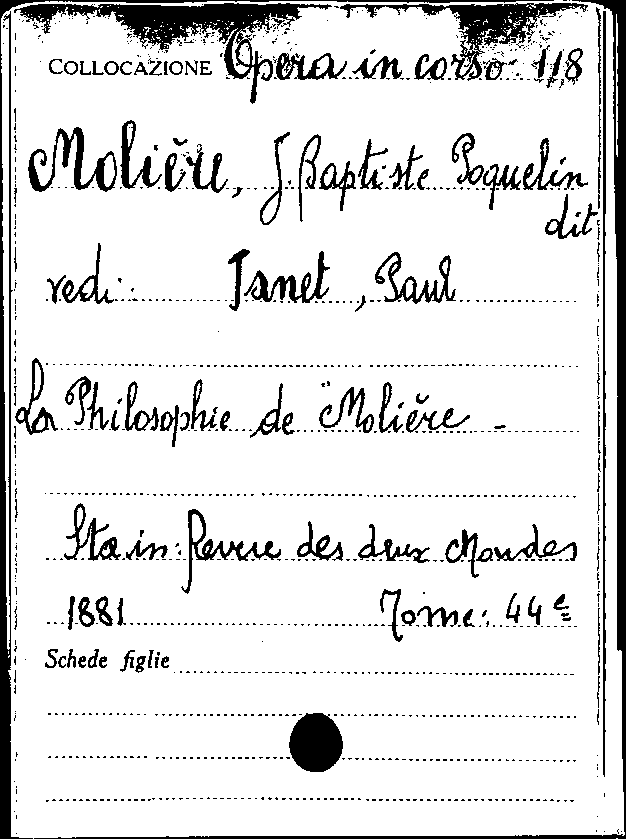 COLLOCAZIONE Opera in corso: 1/8
Molière, J. Baptiste Poquelin
dit
vedi: Janet, Paul
La Philosophie de Molière -
Sta in: Revue des deux Mondes
1881 Tome: 44e
Schede figlie